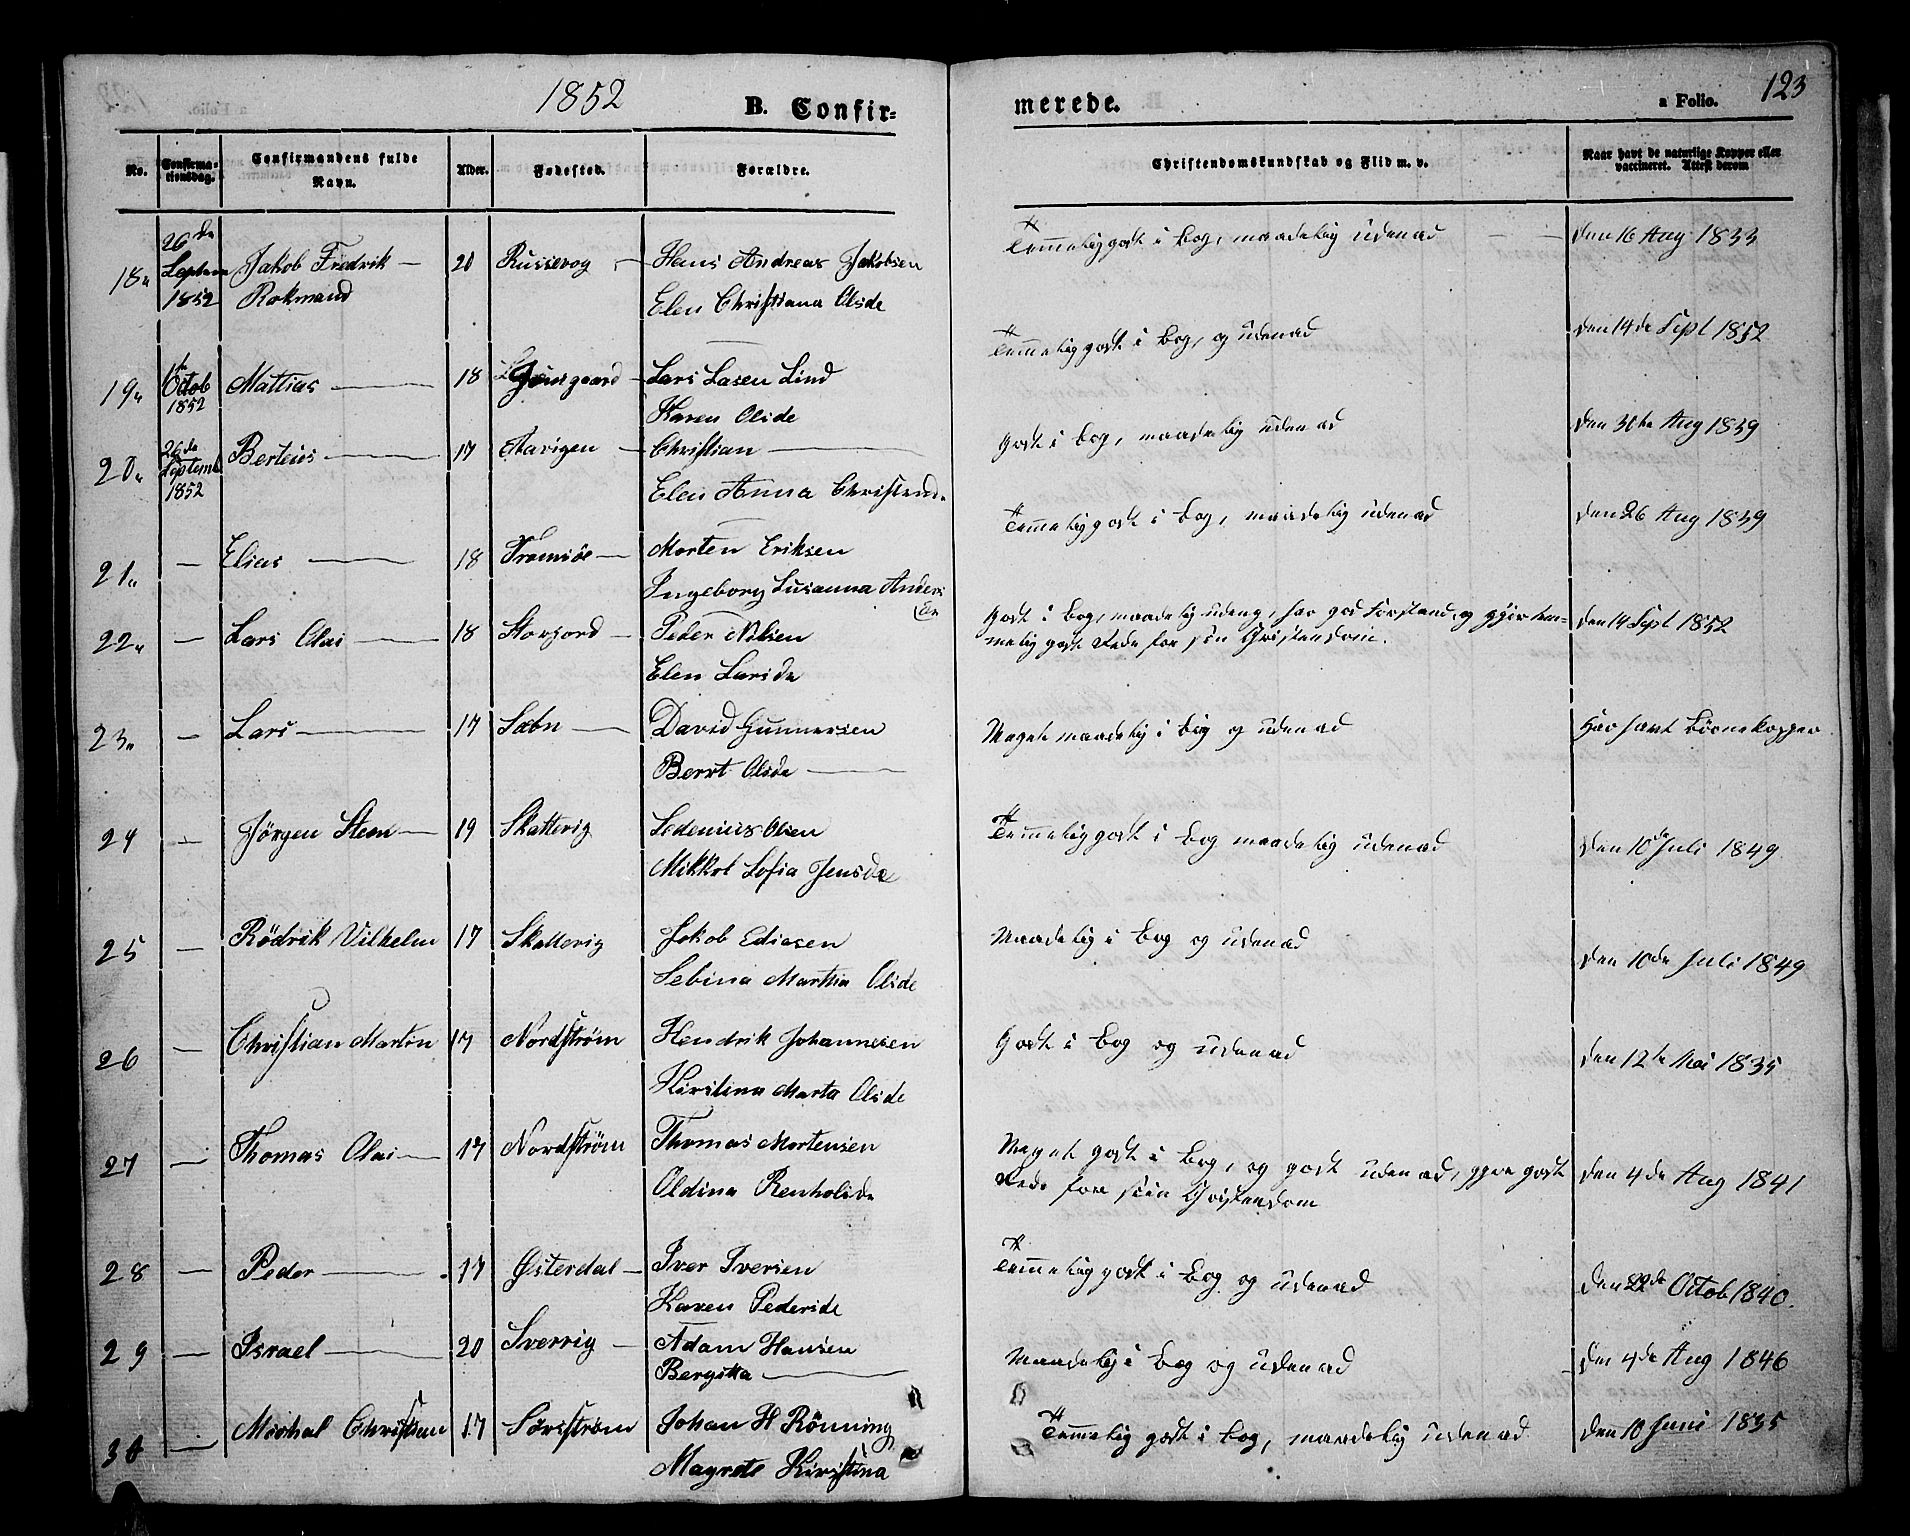 1852
B. Confir=
merede.
a Folio. 123
No.
Confirma=
tionsdag.
Confirmandens fulde
Navn.
Alder.
Fødested.
Forældre.
Christendomskundskab og Flid m. v.
Naar havt de naturlige Kopper eller
vaccineret. Attest derom
18. 26de Septem 1852 Jakob Fredrik Rokmand 20 Russevog Hans Andreas Jakobsen
Elen Christiana Olsde
Temmelig godt i Bog, maadelig udenad den 16 Aug 1833
19. Octob 1852 Mattias 18 Lars Lasen Lind
Karen Olsde
Temmelig godt i Bog, og udenad den 14de Sept 1852
20. 26de Septemb 1852 Berteus 17 Havigen Christian
Elen Anna Christensd.
Godt i Bog, maadelig udenad den 30te Aug 1839
21. Elias 18 Tromsöe Morten Eriksen
Ingeborg Susanna Anders
Temmelig godt i Bog, maadelig udenad den 26 Aug 1839
22. Lars Olai 18 Storfjord Peder Nilsen
Elen Larsde
Godt i Bog, maadelig udena, har god Forstand og gjør tem=
melig godt Rede for sin Christendom. den 14 Sept 1852
23. Lars 17 Sæbn David Gunnersen
Berrt Olsde
Meget maadelig i Bog og udenad Har havt Börnekopper
24 Jörgen Steen 19 Skattevig Sedenius Olsen
Mikkol Sofia Jensde
Temmelig godt i Bog maadelig udenad den 10de Juli 1849
25 Rödrik Vilhelm 17 Skattevig Jakob Ediasen
Sebina Martha Olsde
Maadelig i Bog og udenad den 10de Juli 1849
26 Christian Martin 17 Nordström Hendrik Johannesen
Kirstina Marta Olsde
Godt i Bog og udenad den 12te Mai 1835
27 Thomas Olai 17 Nordström Thomas Mortensen
Oldina Renholsde
Meget godt i Bog, og godt udenad, gjøre godt
Rede for sin Christendom den 4de Aug 1841
28 Peder 17 Østerdal Iver Iversen
Karen Pedersde
Temmelig godt i Bog og udenad den 22de Octob 1840.
29 Israel 20 Sverrig Adam Hansen
Bergitta
Maadelig i Bog og udenad den 4de Aug 1846
30 Mickal Christian 17 Sörström Johan H Rönning
Magrete Kirstina
Temmelig godt i Bog, maadelig udenad den 10 Juni 1835